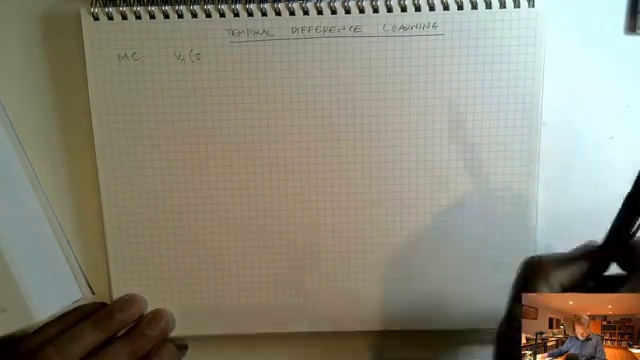 TEMPORAL DIFFERENCE LEARNING
MC: Vₙ(s